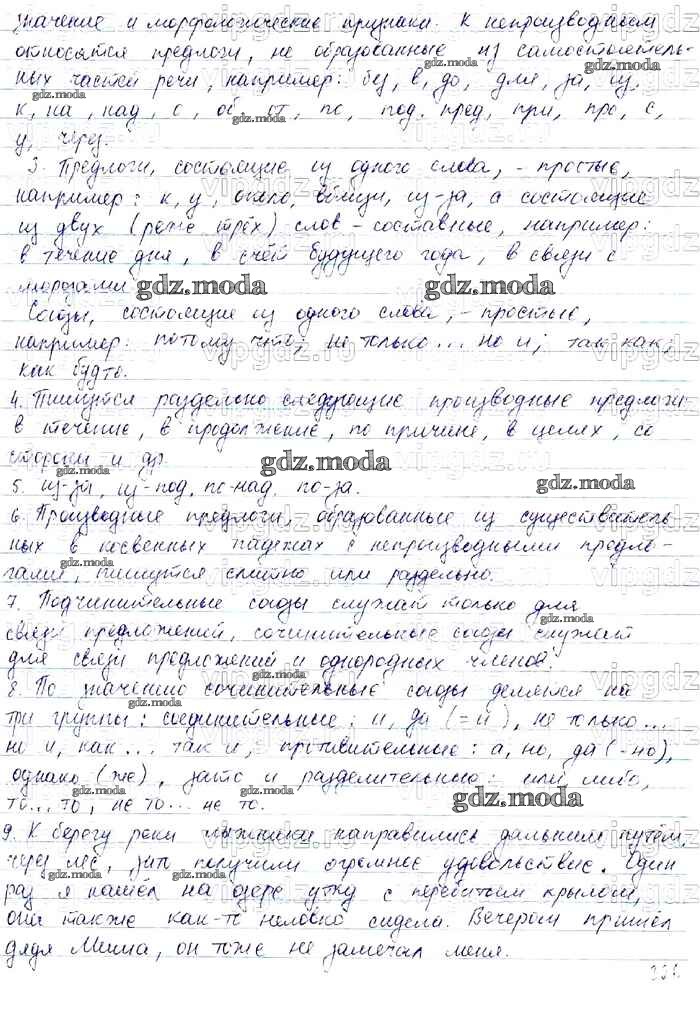 значение и морфологические признаки. К непроизводным
относятся предлоги, не образованные из самостоятель-
ных частей речи, например: без, в, до, для, за, из,
к, на, над, о, об, от, по, под, пред, при, про, с,
у, через.
3. Предлоги, состоящие из одного слова, - простые,
например: к, у, около, вблизи, из-за, а состоящие
из двух (реже трёх) слов - составные, например:
в течение дня, в счёт будущего года, в связи с
морозами.
Союзы, состоящие из одного слова, - простые,
например: потому что; не только... но и; так как;
как будто.
4. Пишутся раздельно следующие производные предлоги:
в течение, в продолжение, по причине, в целях, со
стороны и др.
5. из-за, из-под, по-над, по-за.
6. Производные предлоги, образованные из существитель-
ных в косвенных падежах с непроизводными предло-
гами, пишутся слитно или раздельно.
7. Подчинительные союзы служат только для
связи предложений, сочинительные союзы служат
для связи предложений и однородных членов.
8. По значению сочинительные союзы делятся на
три группы: соединительные: и, да (=и), не только...
но и, как... так и, противительные: а, но, да (-но),
однако (же), зато и разделительные: или либо,
то... то, не то... не то.
9. К берегу реки лыжники направились дальним путём,
через лес, зато получили огромное удовольствие. Один
раз я нашёл на озере утку с перебитым крылом,
она также как-то неловко сидела. Вечером пришёл
дядя Миша, он тоже не замечал меня.